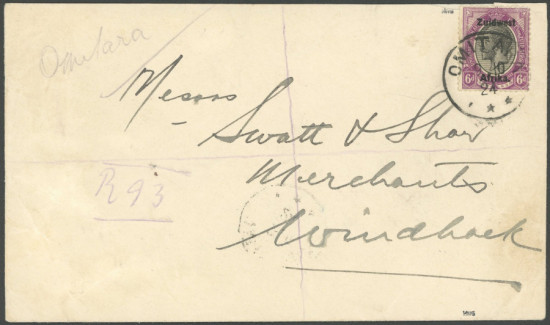 Omitara
Zuidwest
Afrika.
6d 6d
OMITARA
24
Messrs
Swatt & Shaw
Merchants
Windhoek
R 93